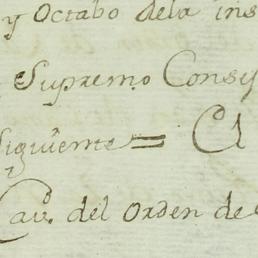 y Octabo dela ins
Supremo Consy
siguiente = El
Cav.º del Orden de